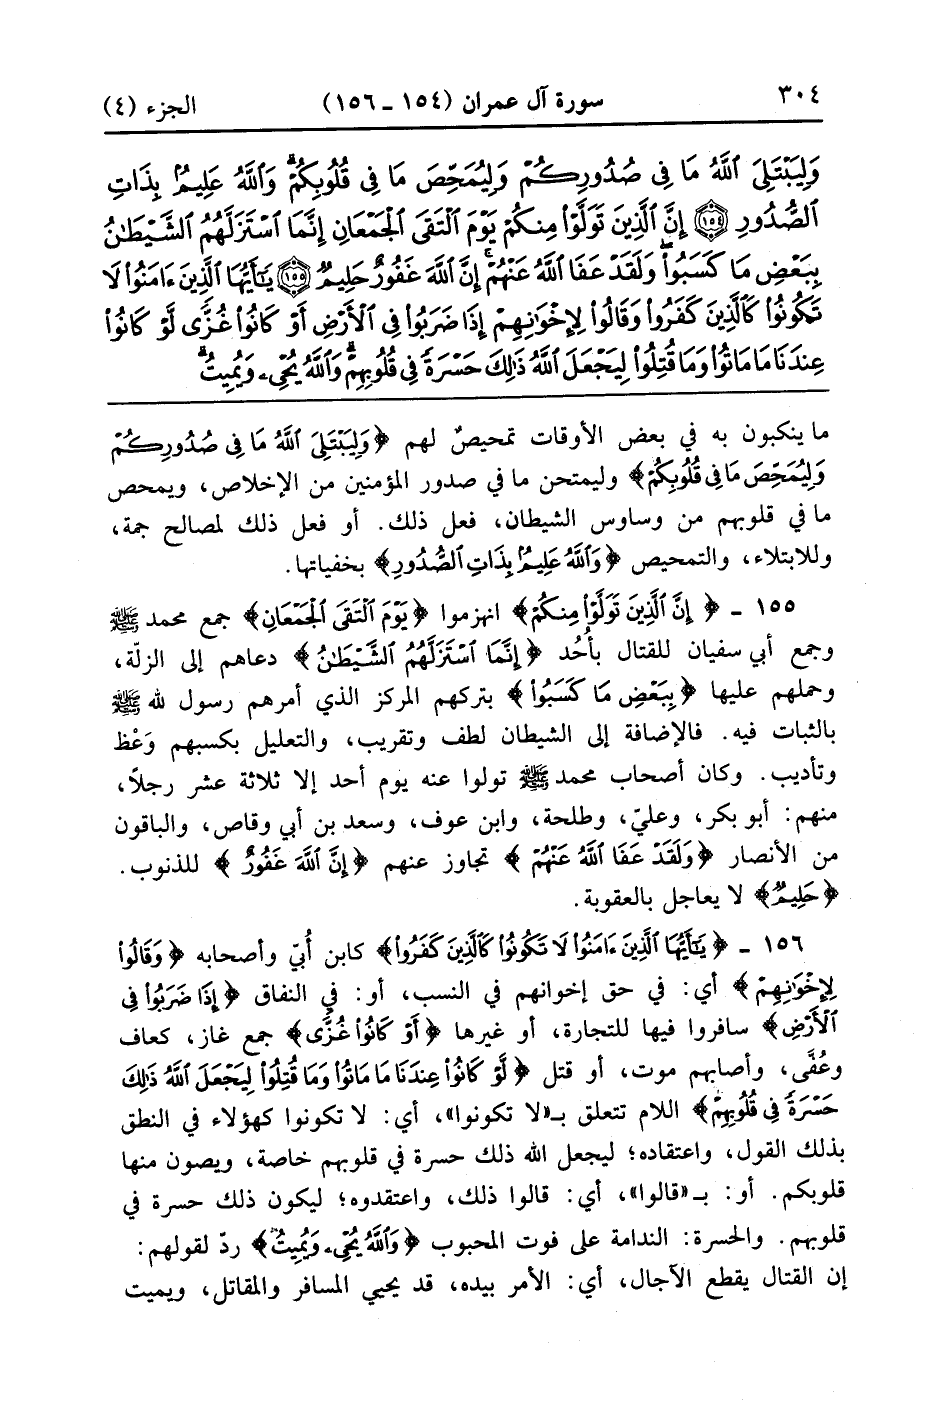 ٣٠٤ سورة آل عمران (١٥٤ - ١٥٦) الجزء (٤)
وَلِيَبْتَلِىَ ٱللَّهُ مَا فِى صُدُورِكُمْ وَلِيُمَحِّصَ مَا فِى قُلُوبِكُمْ ۗ وَٱللَّهُ عَلِيمٌۢ بِذَاتِ
ٱلصُّدُورِ ١٥٤ إِنَّ ٱلَّذِينَ تَوَلَّوْا۟ مِنكُمْ يَوْمَ ٱلْتَقَى ٱلْجَمْعَانِ إِنَّمَا ٱسْتَزَلَّهُمُ ٱلشَّيْطَـٰنُ
بِبَعْضِ مَا كَسَبُوا۟ ۖ وَلَقَدْ عَفَا ٱللَّهُ عَنْهُمْ ۗ إِنَّ ٱللَّهَ غَفُورٌ حَلِيمٌ ١٥٥ يَـٰٓأَيُّهَا ٱلَّذِينَ ءَامَنُوا۟ لَا
تَكُونُوا۟ كَٱلَّذِينَ كَفَرُوا۟ وَقَالُوا۟ لِإِخْوَٰنِهِمْ إِذَا ضَرَبُوا۟ فِى ٱلْأَرْضِ أَوْ كَانُوا۟ غُزًّى لَّوْ كَانُوا۟
عِندَنَا مَا مَاتُوا۟ وَمَا قُتِلُوا۟ لِيَجْعَلَ ٱللَّهُ ذَٰلِكَ حَسْرَةً فِى قُلُوبِهِمْ ۗ وَٱللَّهُ يُحْىِۦ وَيُمِيتُ ۗ
ما ينكبون به في بعض الأوقات تمحيصٌ لهم ﴿وَلِيَبْتَلِىَ ٱللَّهُ مَا فِى صُدُورِكُمْ
وَلِيُمَحِّصَ مَا فِى قُلُوبِكُمْ﴾ وليمتحن ما في صدور المؤمنين من الإخلاص، ويمحص
ما في قلوبهم من وساوس الشيطان، فعل ذلك. أو فعل ذلك لمصالح جمة،
وللابتلاء، والتمحيص ﴿وَٱللَّهُ عَلِيمٌۢ بِذَاتِ ٱلصُّدُورِ﴾ بخفياتها.
١٥٥ - ﴿إِنَّ ٱلَّذِينَ تَوَلَّوْا۟ مِنكُمْ﴾ انهزموا ﴿يَوْمَ ٱلْتَقَى ٱلْجَمْعَانِ﴾ جمع محمد ﷺ
وجمع أبي سفيان للقتال بأُحُد ﴿إِنَّمَا ٱسْتَزَلَّهُمُ ٱلشَّيْطَـٰنُ﴾ دعاهم إلى الزلّة،
وحملهم عليها ﴿بِبَعْضِ مَا كَسَبُوا۟﴾ بتركهم المركز الذي أمرهم رسول لله ﷺ
بالثبات فيه. فالإضافة إلى الشيطان لطف وتقريب، والتعليل بكسبهم وَعْظ
وتأديب. وكان أصحاب محمد ﷺ تولوا عنه يوم أحد إلا ثلاثة عشر رجلاً،
منهم: أبو بكر، وعليّ، وطلحة، وابن عوف، وسعد بن أبي وقاص، والباقون
من الأنصار ﴿وَلَقَدْ عَفَا ٱللَّهُ عَنْهُمْ﴾ تجاوز عنهم ﴿إِنَّ ٱللَّهَ غَفُورٌ﴾ للذنوب.
﴿حَلِيمٌ﴾ لا يعاجل بالعقوبة.
١٥٦ - ﴿يَـٰٓأَيُّهَا ٱلَّذِينَ ءَامَنُوا۟ لَا تَكُونُوا۟ كَٱلَّذِينَ كَفَرُوا۟﴾ كابن أُبيّ وأصحابه ﴿وَقَالُوا۟
لِإِخْوَٰنِهِمْ﴾ أي: في حق إخوانهم في النسب، أو: في النفاق ﴿إِذَا ضَرَبُوا۟ فِى
ٱلْأَرْضِ﴾ سافروا فيها للتجارة، أو غيرها ﴿أَوْ كَانُوا۟ غُزًّى﴾ جمع غاز، كعاف
وعُفَّى، وأصابهم موت، أو قتل ﴿لَّوْ كَانُوا۟ عِندَنَا مَا مَاتُوا۟ وَمَا قُتِلُوا۟ لِيَجْعَلَ ٱللَّهُ ذَٰلِكَ
حَسْرَةً فِى قُلُوبِهِمْ﴾ اللام تتعلق بـ«لا تكونوا»، أي: لا تكونوا كهؤلاء في النطق
بذلك القول، واعتقاده؛ ليجعل الله ذلك حسرة في قلوبهم خاصة، ويصون منها
قلوبكم. أو: بـ«قالوا»، أي: قالوا ذلك، واعتقدوه؛ ليكون ذلك حسرة في
قلوبهم. والحسرة: الندامة على فوت المحبوب ﴿وَٱللَّهُ يُحْىِۦ وَيُمِيتُ﴾ ردّ لقولهم:
إن القتال يقطع الآجال، أي: الأمر بيده، قد يحيي المسافر والمقاتل، ويميت